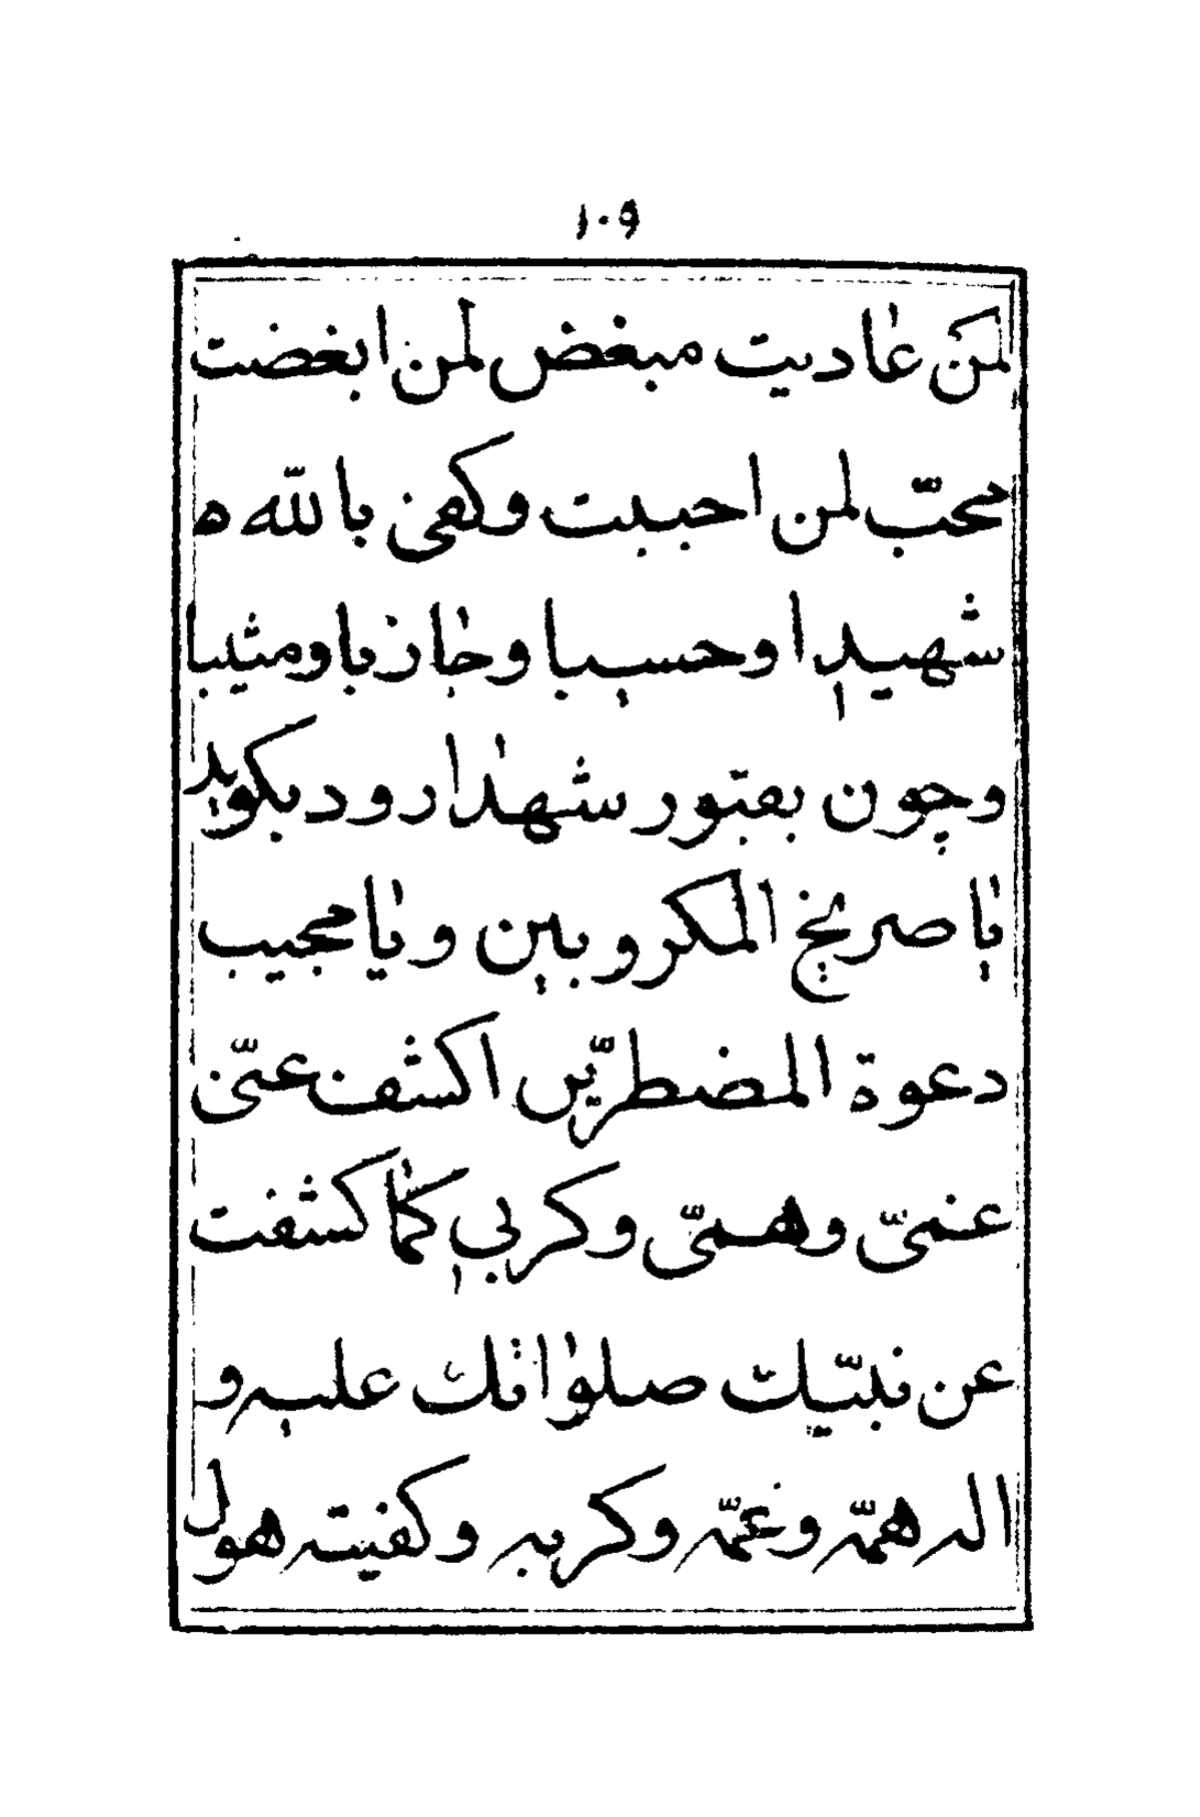 ۱۰۹
لمن عادیت مبغض لمن ابغضت
محبّ لمن احببت وکفی بالله
شهیدا وحسیبا وجازیا ومثیبا
وچون بقبور شهدا رود بکوید
یا صریخ المکروبین ویا مجیب
دعوة المضطرّین اکشف عنّی
غمّی وهمّی وکربی کما کشفت
عن نبیّک صلواتک علیه و
اله همّه وغمّه وکربه وکفیته هول